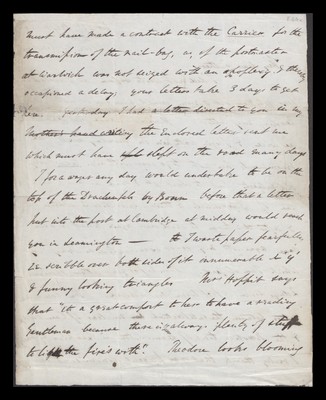 must have made a contract with the Carrier for the
transmission of the mail-bag, or, if the postmaster
at Warwick was not seized with an apoplexy & thereby
occasioned a delay; your letters take 3 days to get
here yesterday I had a letter directed to you in my
Mothers hand writing the enclosed letter sent me
which must have slept on the road many days
I for a wager any day would undertake to be on the
top of the by Brown before that a letter
put into the post at Cambridge at midday would reach
you in Leamington — I waste paper fearfully
& scribble over both sides of it innumerable x's y's
& funny looking triangles Mrs Hoppit says
that "it is a great comfort to her to have a reading
Gentleman because there is always plenty of stuff
to light the fire's with". Theodore looks blooming